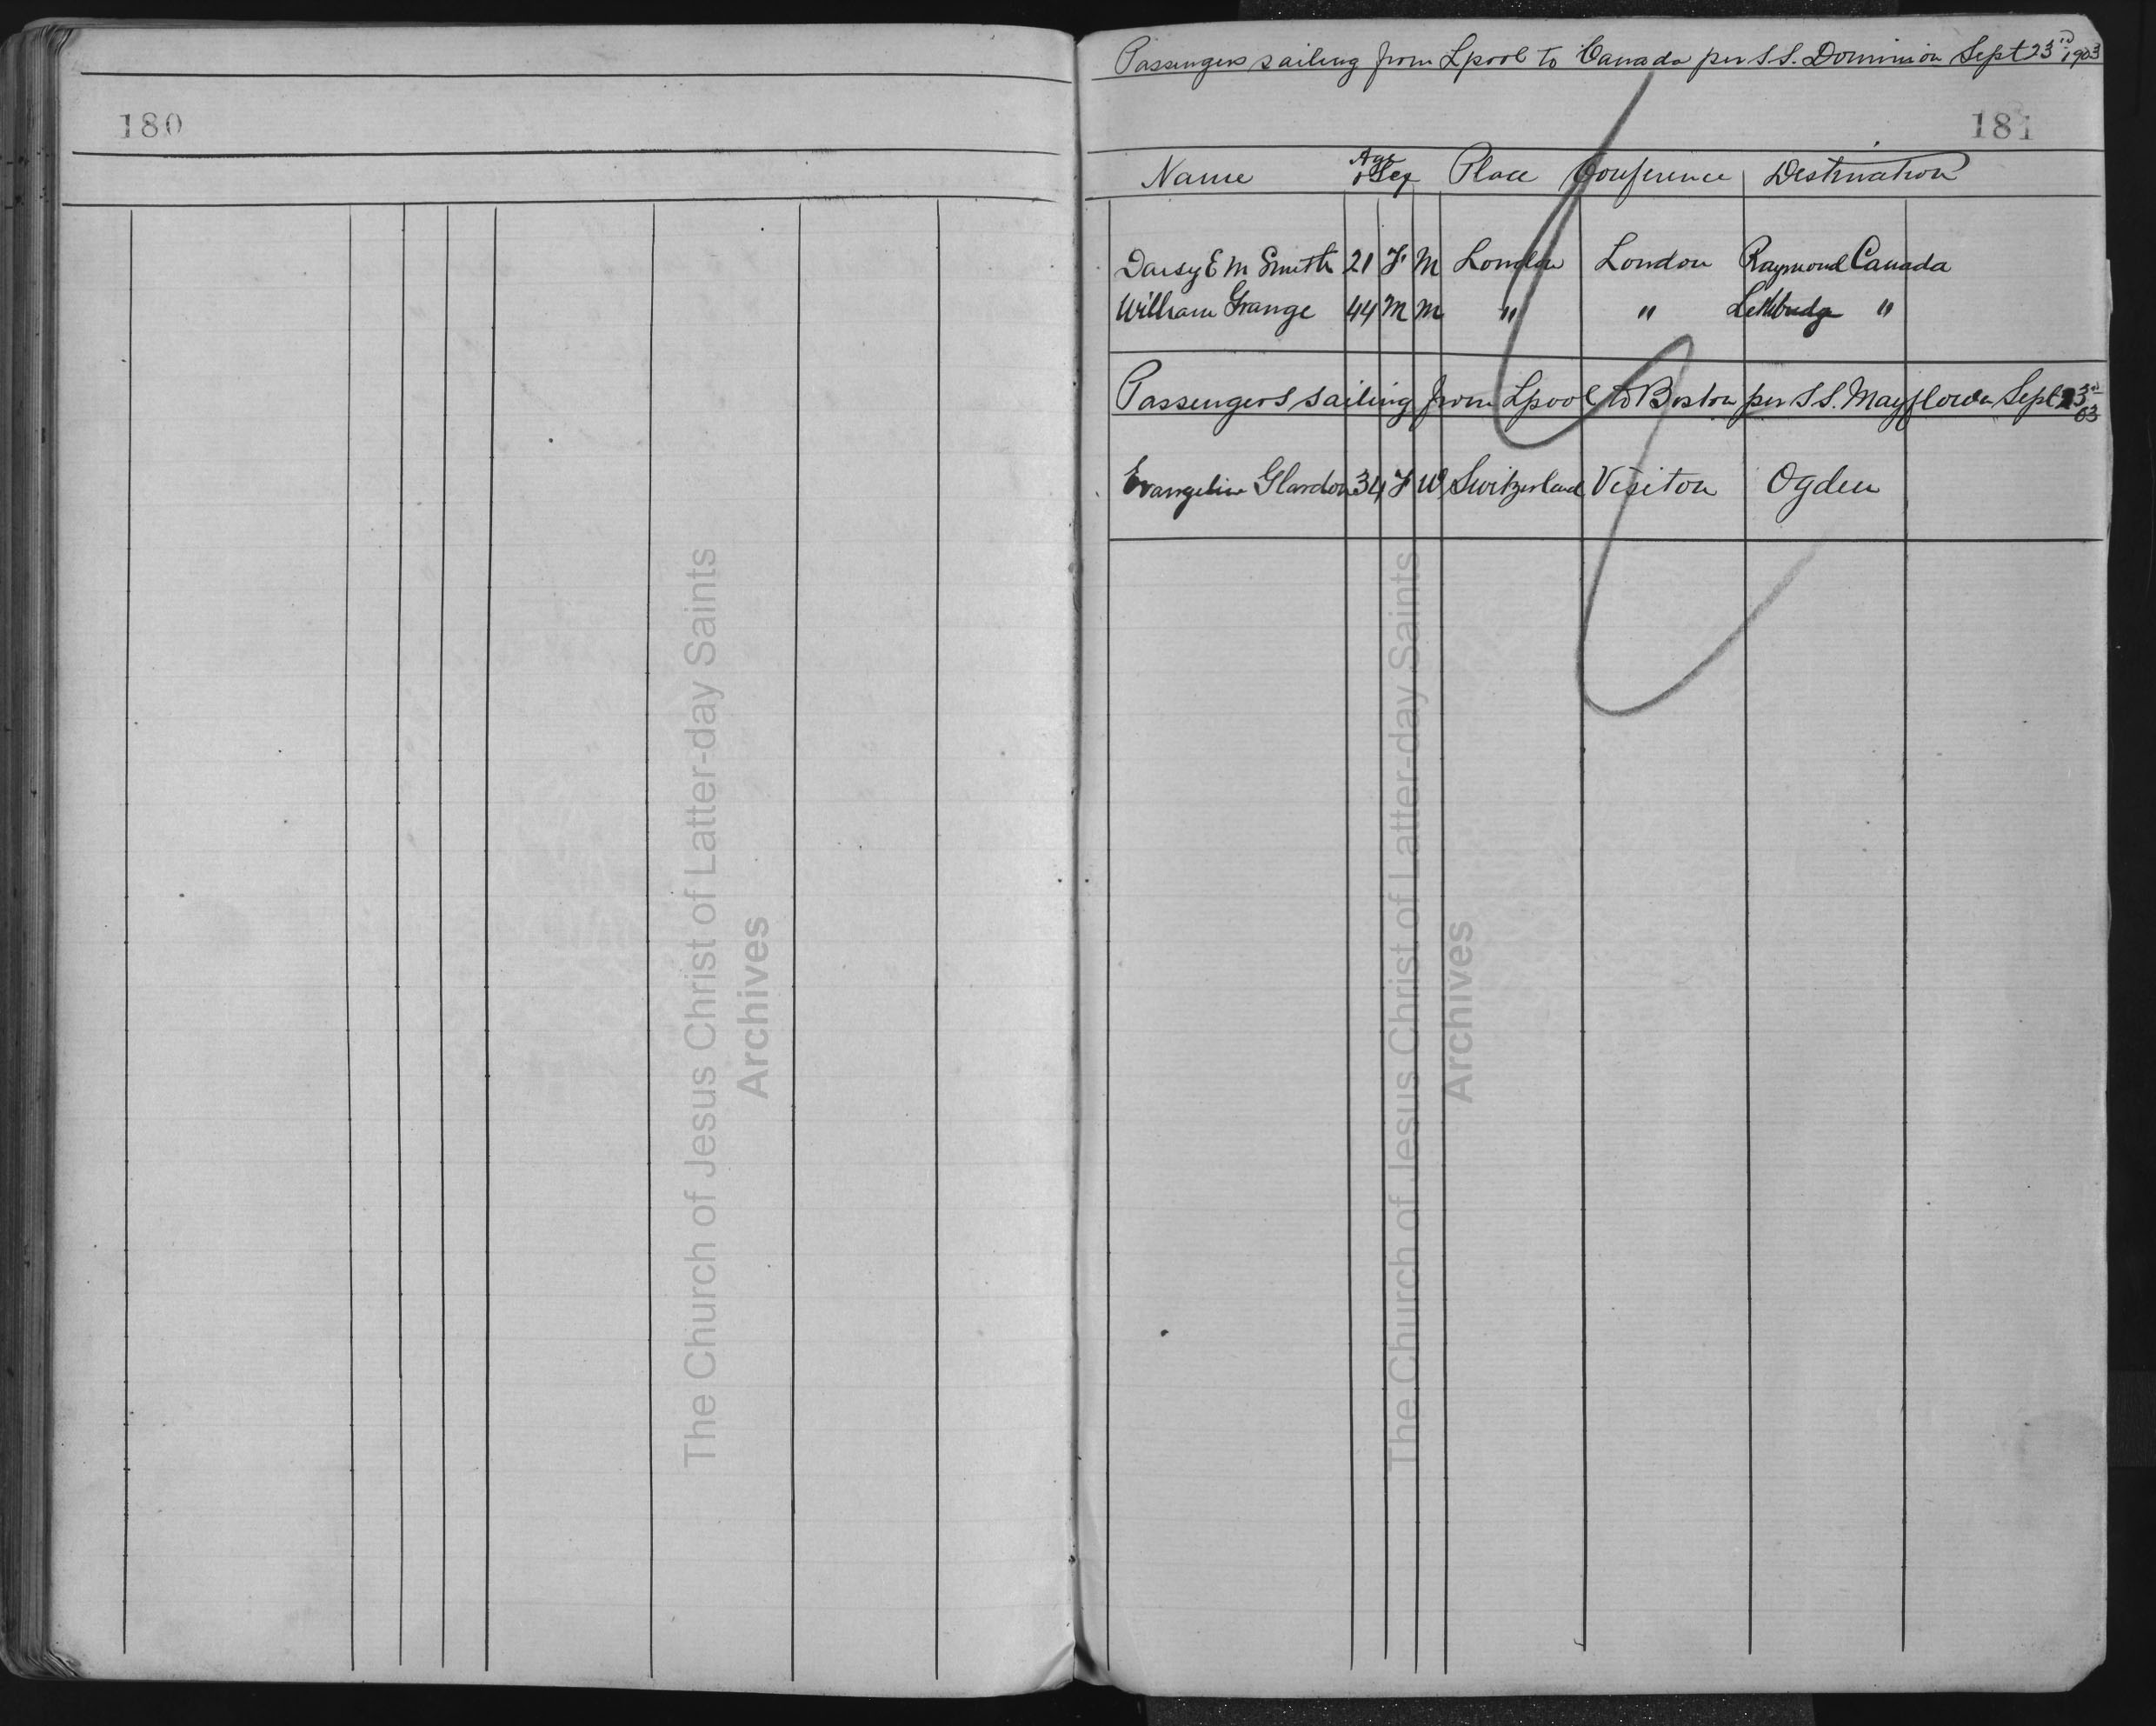 180
Passengers sailing from Lpool to Canada per S.S. Dominion Sept 23rd 1903
181
Name Age & Sex Place Conference Destination
Daisy E M Smith 21 F M London London Raymond Canada
William Grange 44 M M " " Lethbridge "
Passengers sailing from Lpool to Boston per S.S. Mayflower Sept 23rd 03
Evangeline Glardon 34 F W Switzerland Visitor Ogden
The Church of Jesus Christ of Latter-day Saints
Archives
The Church of Jesus Christ of Latter-day Saints
Archives